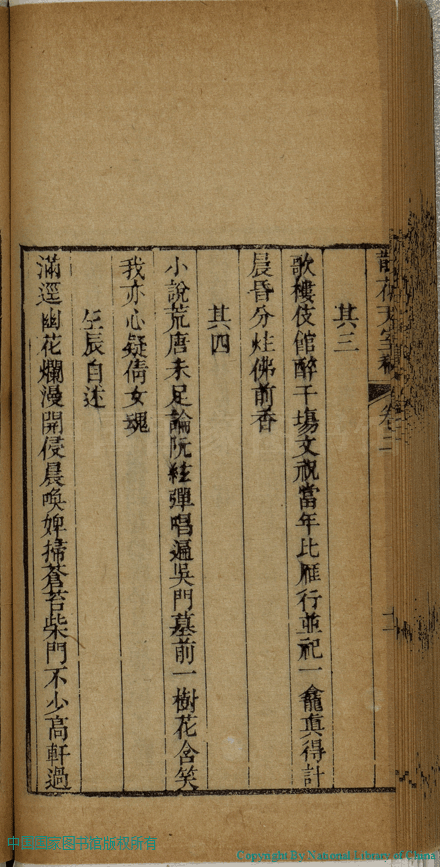 散花天室稿 卷二 二
其三
歌樓伎館醉千塲文祝當年比雁行並祀一龕眞得計
晨昏分炷佛前香
其四
小說荒唐未足論阮絃彈唱遍吳門墓前一樹花含笑
我亦心疑倩女魂
壬辰自述
滿逕幽花爛漫開侵晨喚婢掃蒼苔柴門不少高軒過
中国国家图书馆版权所有
Copyright By National Library of China